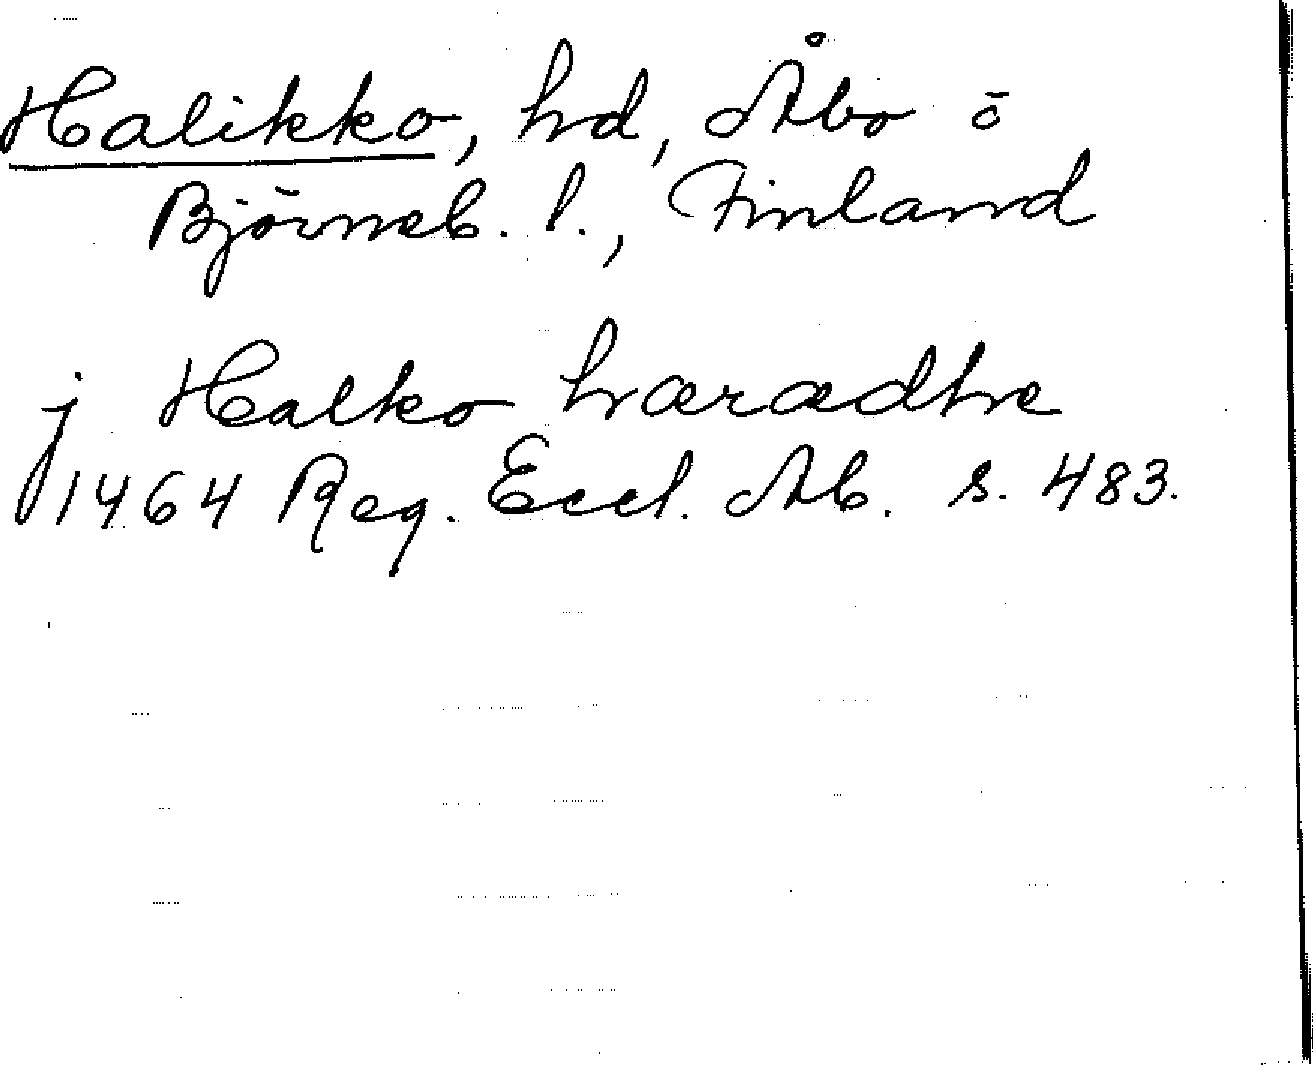 Halikko, hd, Åbo ō
Björneb. l., Finland
j Halko hæradhe
1464 Reg. Eccl. Ab. s. 483.